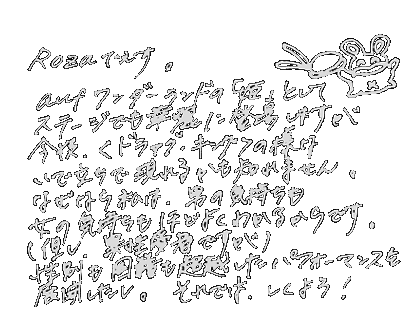 Rozaです。
ワンダーランドの「姫」として
ステージでも華麗に登場しますが
今後、ドラァグ・キングの様な
いで立ちで現れるかも知れません。
なぜなら私は、男の気持ちも
女の気持ちも ほどよくわかるからです。
(但し、異性愛者ですが)
性別も国籍も超越したパフォーマンスを
展開したい。それでは、しくよろ!